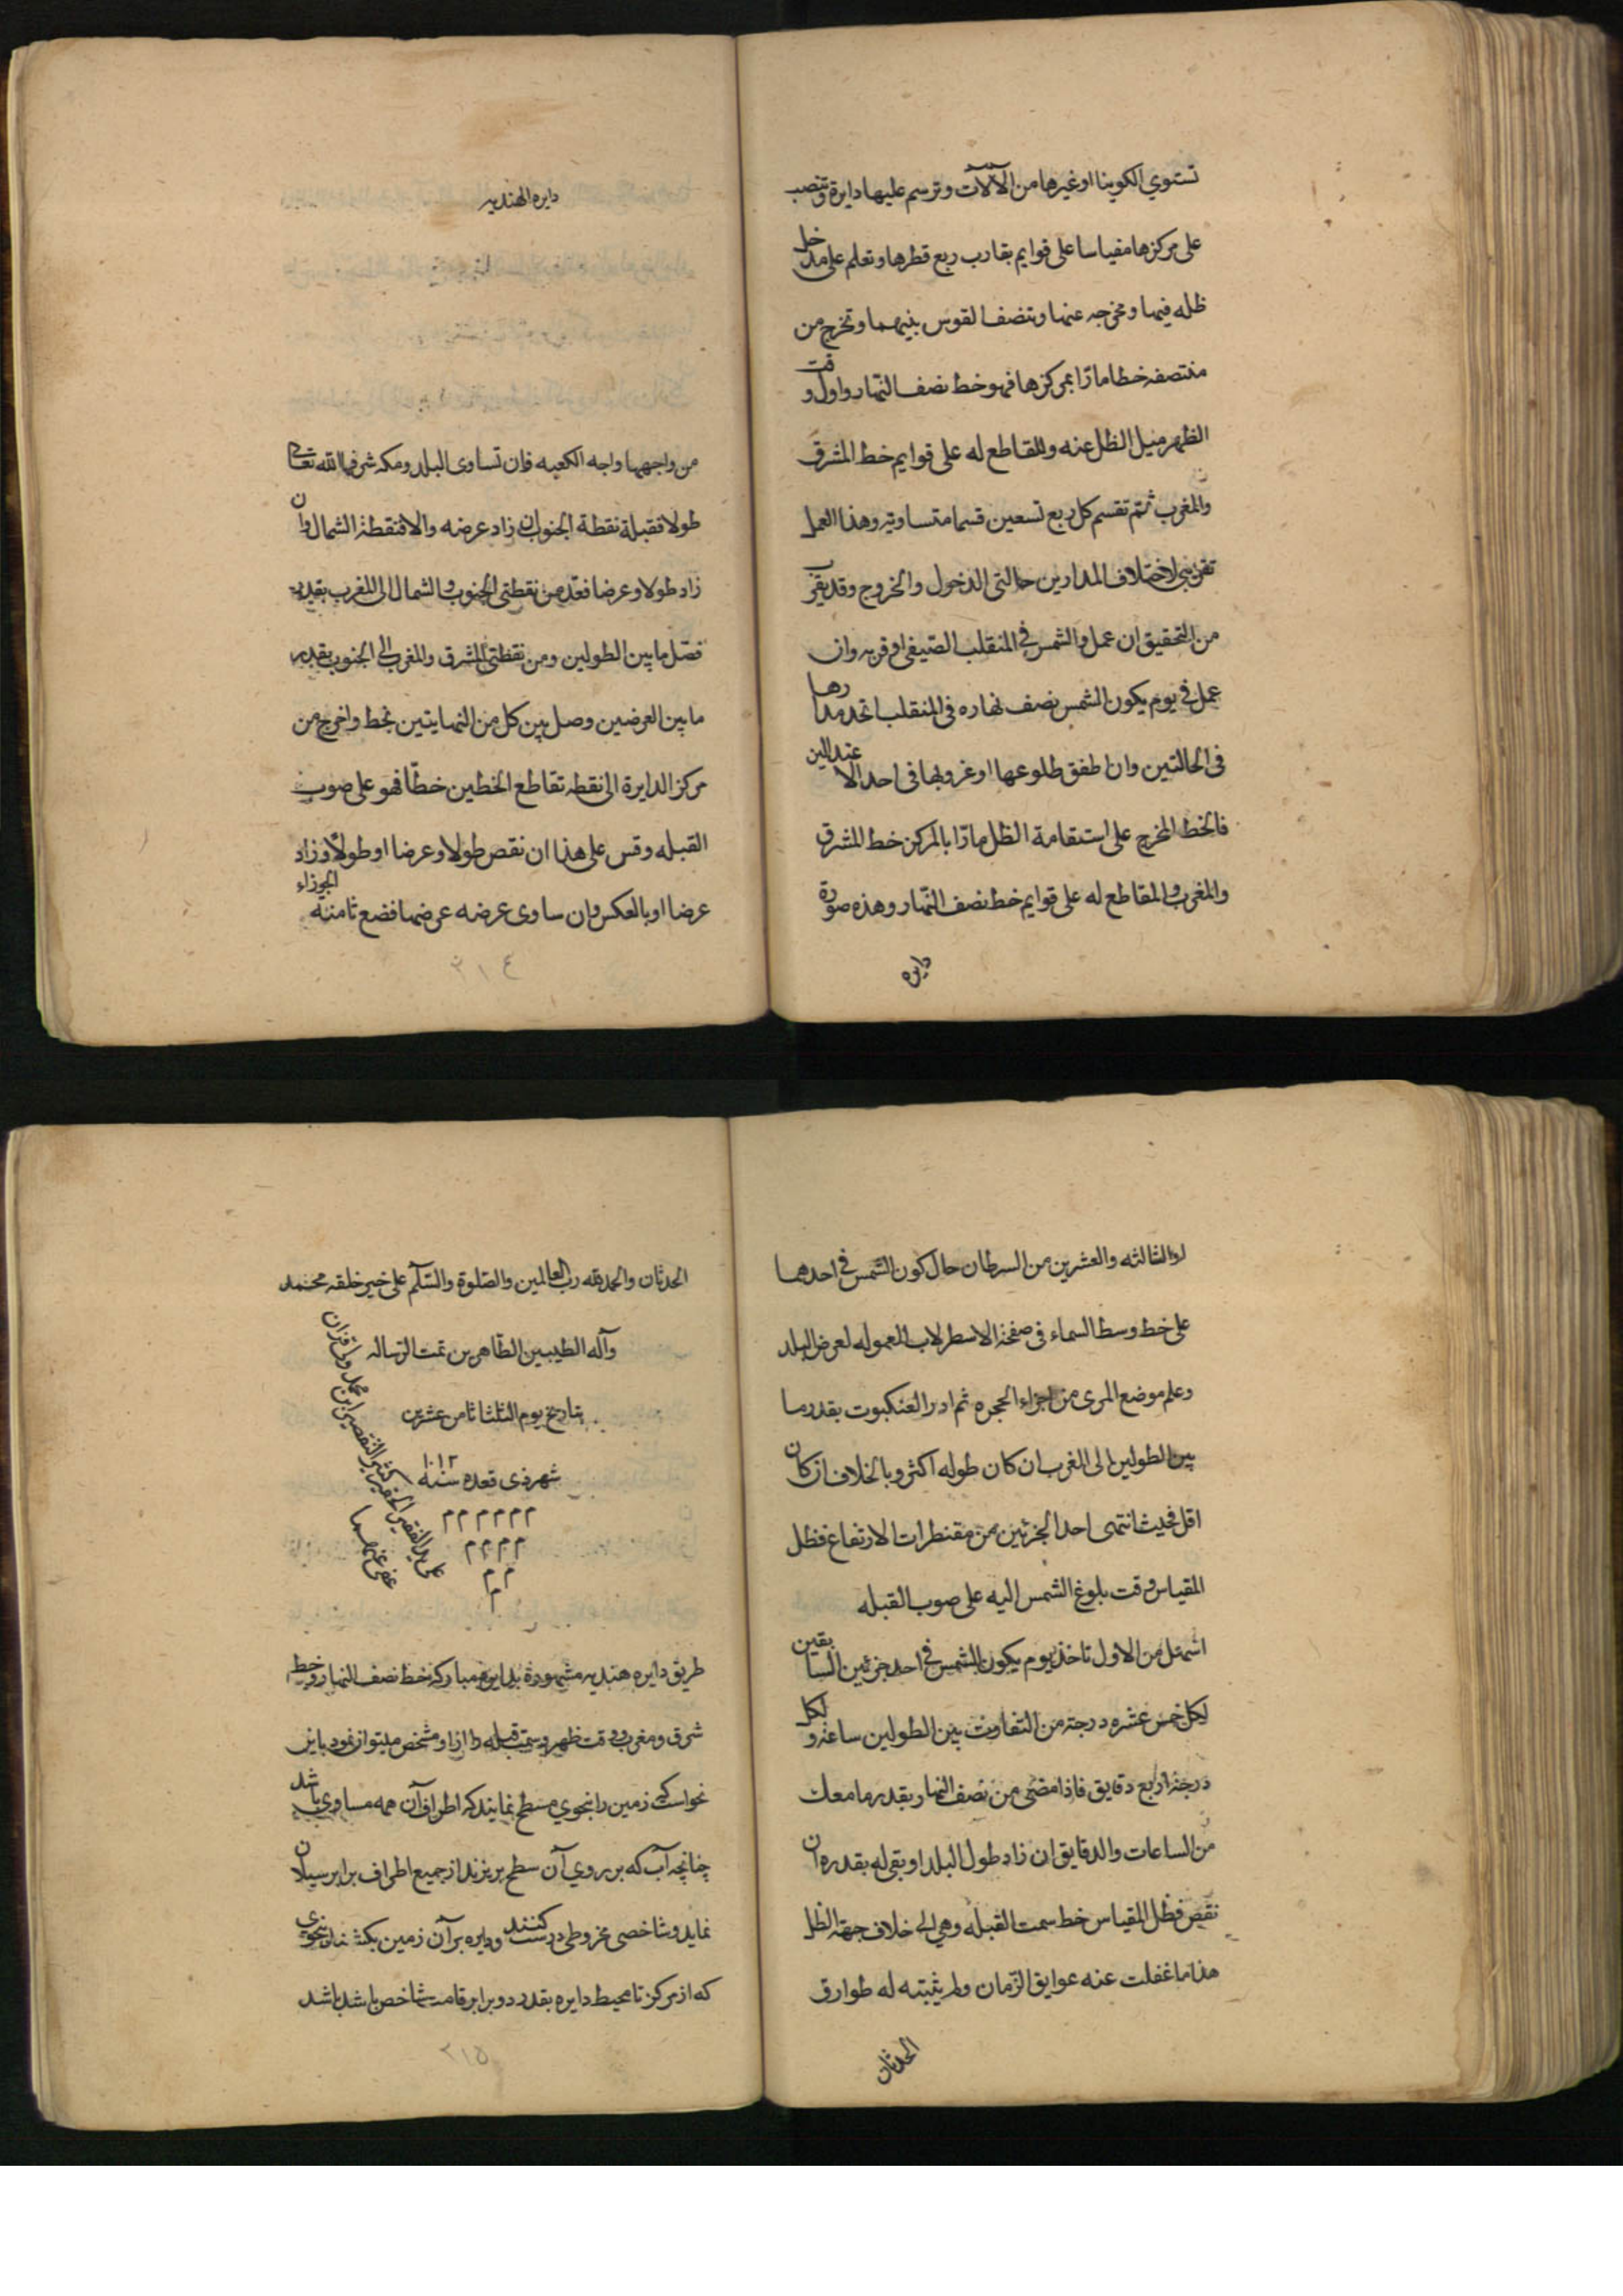 تستوي الكوينا او غيرها من الآلات وترسم عليها دايرة وتنصب
على مركزها مقياسا على قوايم بقارب ربع قطرها وتعلم على مدخل
ظله فيها ومخرجه عنها وتنصف القوس بينهما وتخرج من
منتصفه خطا مارّا بمركزها فهو خط نصف النهار واول وقت
الظهر ميل الظل عنه والمقاطع له على قوايم خط المشرق
والمغرب ثم تقسم كل ربع تسعين قسما متساويه وهذا العمل
تقريبي لاختلاف المدارين حالتى الدخول والخروج وقد يقرب
من التحقيق ان عمل والشمس في المنقلب الصيفي او قربه وان
عمل في يوم يكون الشمس نصف نهاره في المنقلب اتحد مدارها
في الحالتين وان اطفق طلوعها او غروبها في احد الاعتدالين
فالخط المخرج على استقامة الظل مارّا بالمركز خط المشرق
والمغرب والمقاطع له على قوايم خط نصف النهار وهذه صورة
دايره
دايره الهنديه
من واجهها واجه الكعبه فان تساوى البلد ومكه شرفها الله تعالى
طولا فقبلة نقطة الجنوب ان زاد عرضه والا فنقطة الشمال وان
زاد طولا وعرضا فعد من نقطتى الجنوب والشمال الى المغرب بقدر
فضل ما بين الطولين ومن نقطتى المشرق والمغرب الى الجنوب بقدر
ما بين العرضين وصل بين كل من النهايتين بخط واخرج من
مركز الدايرة الى نقطه تقاطع الخطين خطّا فهو على صوب
القبله وقس على هذا ان نقص طولا وعرضا او طولًا وزاد
عرضا او بالعكس وان ساوى عرضه عرضها فضع ثامنه الجوزاء
٢١٤
او الثالثه والعشرين من السرطان حال كون الشمس في احدهما
على خط وسط السماء في صفحة الاسطرلاب المعموله لعرض البلد
وعلم موضع المرى من اجزاء الحجره ثم ادر العنكبوت بقدر ما
بين الطولين الى المغرب ان كان طوله اكثر وبالخلاف ان كان
اقل فحيث انتهى احد الجزئين من مقنطرات الارتفاع فظل
المقياس وقت بلوغ الشمس اليه على صوب القبله
اسهل من الاول تاخذ يوم يكون الشمس في احد جزئين السابقين
لكل خمس عشره درجة من التفاوت بين الطولين ساعة ولكل
درجة اربع دقايق فاذا مضى من نصف النهار بقدر ما معك
من الساعات والدقايق ان زاد طول البلد او بقى له بقدره ان
نقص فظل المقياس خط سمت القبله وهي الى خلاف جهة الظل
هذا ما غفلت عنه عوايق الزمان ولم يثبته له طوارق
الحدثان
الحدثان والحمد لله رب العالمين والصلوة والسّلم على خير خلقه محمد
وآله الطيبين الطّاهرين تمت الرساله
بتاريخ يوم الثلثا ثامن عشرين
شهر ذى قعده سنه ١٠١٢
م م م م م م
م م م م
م م
م
على يد الفقير الحقير كثير التقصير ابن محمد
عفى عنهما
طريق دايره هنديه مشهوده بدايوه مباركه خط نصف النهار وخط
شرق ومغرب و وقت ظهر وسمت قبله را از او مشخص ميتوان نمود باين
نحو است كه زمين را بنحوي مسطح نمايند كه اطراف آن همه مساوي باشد
چنانچه آب كه بر روي آن سطح بريزند از جميع اطراف برابر سيلان
نمايد و شاخصى مخروطى درست كنند و دايره بر آن زمين بكشند بنحوي
كه از مركز تا محيط دايره بقدر دو برابر قامت شاخص باشد باشد
٢١٥